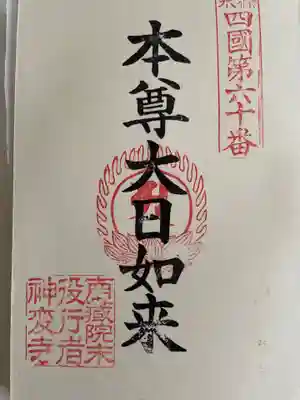 四國第六十番
本尊大日如来
南蔵院末
役行者
神変寺